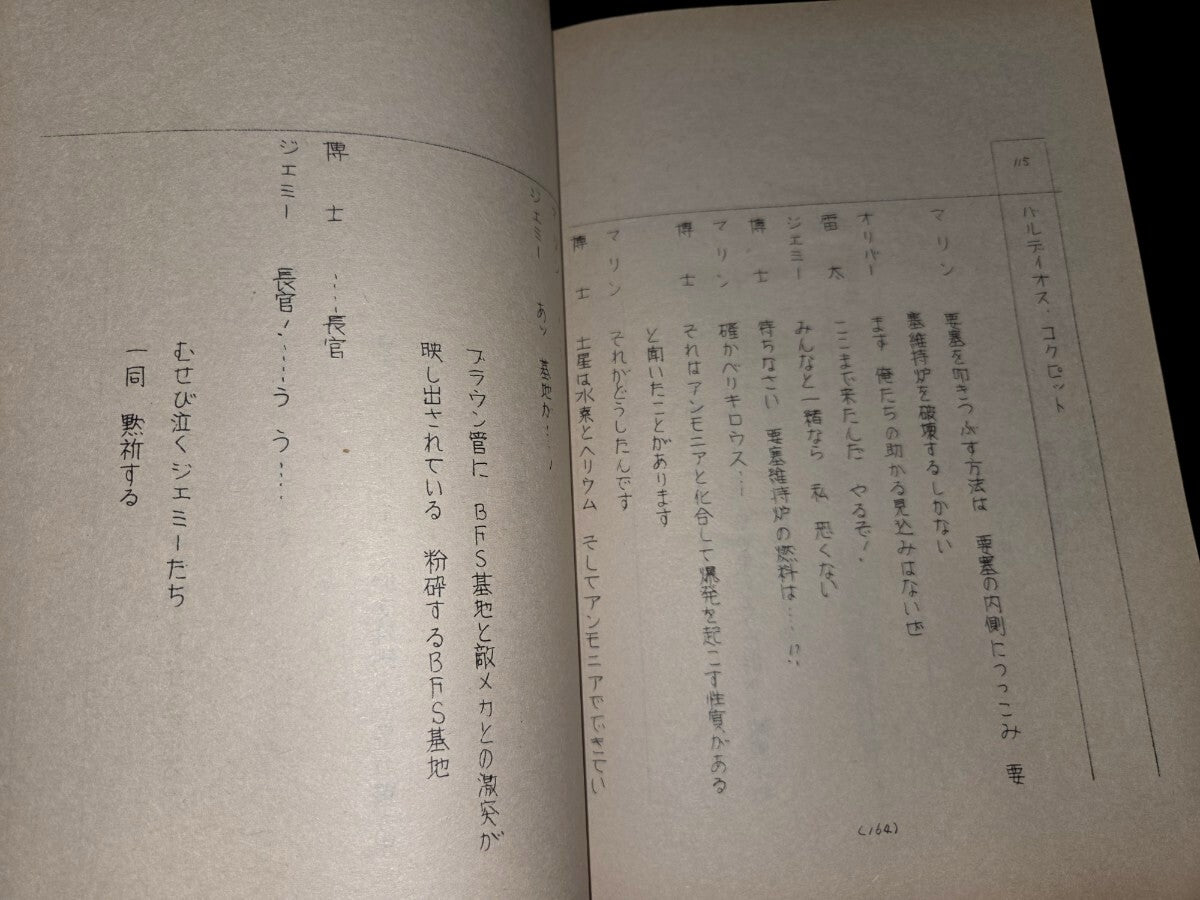 115
バルディオス・コクピット
マリン 要塞を叩きつぶす方法は 要塞の内側につっこみ 要
塞維持炉を破壊するしかない
オリバー まず 俺たちの助かる見込みはないぜ
雷太 ここまで来たんだ やるぞ!
ジェミー みんなと一緒なら 私 恐くない
博士 待ちなさい 要塞維持炉の燃料は……!?
マリン 確かベリキロウス…
博士 それはアンモニアと化合して爆発を起こす性質がある
と聞いたことがあります
マリン それがどうしたんです
博士 土星は水素とヘリウム そしてアンモニアでできてい
(164)
ジェミー あッ 基地が…!
ブラウン管に BFS基地と敵メカとの激突が
映し出されている 粉砕するBFS基地
博士 ……長官
ジェミー 長官!……う う……
むせび泣くジェミーたち
一同 黙祈する